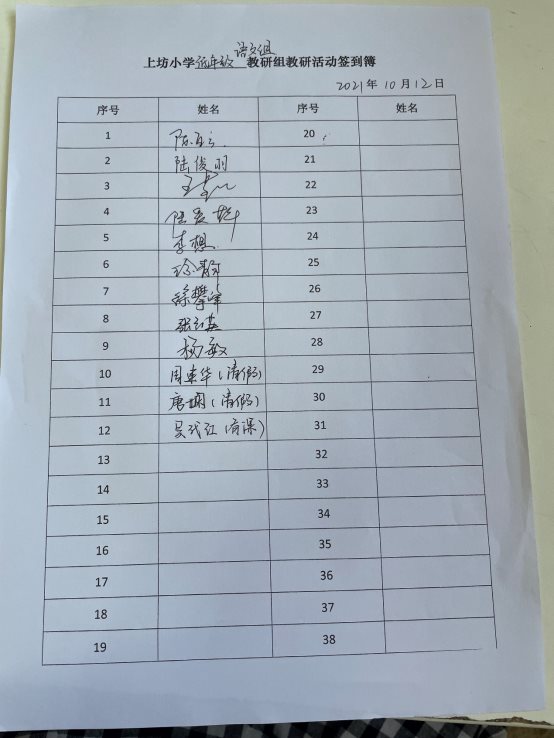 语文组
上坊小学低年级教研组教研活动签到簿
2021年10月12日
序号 姓名 序号 姓名
1 20
2 陆俊羽 21
3 22
4 23
5 李想 24
6 25
7 26
8 27
9 杨敏 28
10 周东华(请假) 29
11 唐娴(请假) 30
12 (有课) 31
13 32
14 33
15 34
16 35
17 36
18 37
19 38